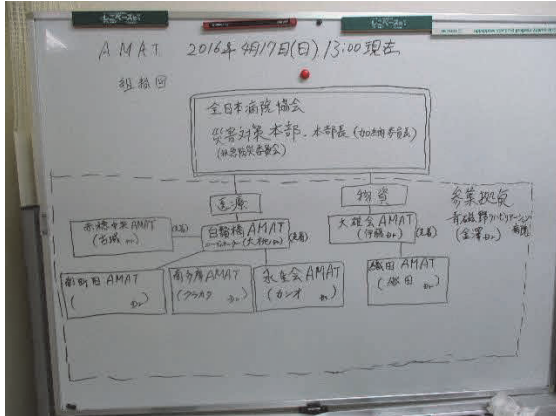 AMAT 2016年4月17日(日) 13:00現在
組織図
全日本病院協会
災害対策本部、本部長(加納委員長)
(救急防災委員会)
医源
物資
参集拠点
赤穂中央AMAT
(古城 Dr)
(先着)
白鬚橋AMAT
(大桃Dr)
(先着)
大雄会AMAT
(伊藤Dr)
(先着)
(金澤Dr)
病院
南町田AMAT
( Dr)
南多摩AMAT
(クラカタ Dr)
永生会AMAT
(カンオ Dr)
織田AMAT
(織田 Dr)